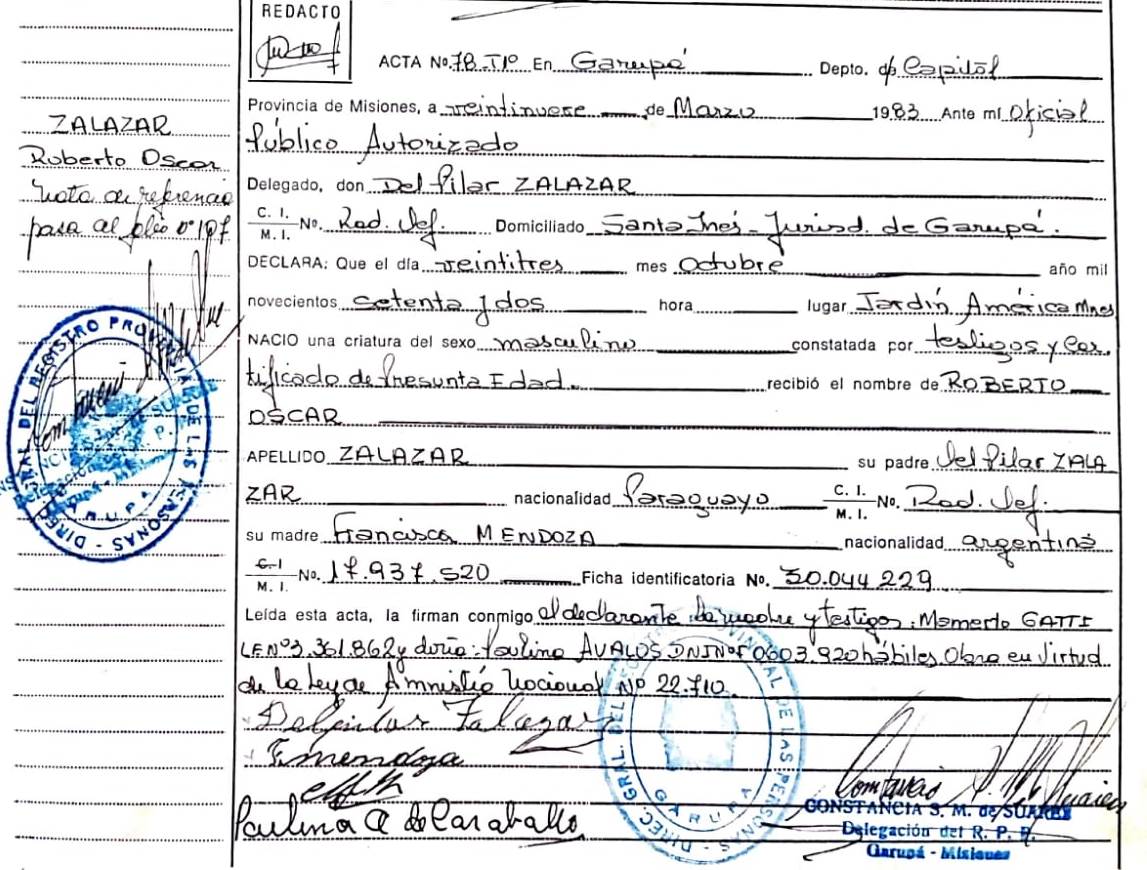 REDACTO
ACTA No. 78 Tº En Garupá Depto. de Capital
Provincia de Misiones, a veintinueve de Marzo 1983 Ante mí Oficial
Público Autorizado
Delegado, don Del Pilar ZALAZAR
C. I. M. I. No. Rad. Def. Domiciliado Santa Inés - Jurisd. de Garupá.
DECLARA: Que el día veintitres mes Octubre año mil
novecientos setenta y dos hora lugar Jardín América Mnes
NACIO una criatura del sexo masculino constatada por testigos y Cer
tificado de Presunta Edad recibió el nombre de ROBERTO
OSCAR
APELLIDO ZALAZAR su padre Del Pilar ZALA
ZAR nacionalidad Paraguayo C. I. M. I. No. Rad. Def.
su madre Francisca MENDOZA nacionalidad argentina
C. I. M. I. No. 17.937.520 Ficha identificatoria No. 30.044.229
Leída esta acta, la firman conmigo el declarante la madre y testigos: Mamerto GATTI
LE Nº 3.361.862 y doña: Paulina AVALOS DNI Nº F 0603.920 hábiles. Obra en Virtud
de la Ley de Amnistía Nacional Nº 22.710.
Delpilar Zalazar
F. mendoza
Paulina A de Caraballo
CONSTANCIA S. M. de SUAREZ
Delegación del R. P. P.
Garupá - Misiones
ZALAZAR
Roberto Oscar
Nota de referencia
pasa al folio nº 197
DIREC. GRAL. DEL REGISTRO PROVINCIAL DE LAS PERSONAS
GARUPA
DIREC. GRAL. DEL REGISTRO PROVINCIAL DE LAS PERSONAS
GARUPA